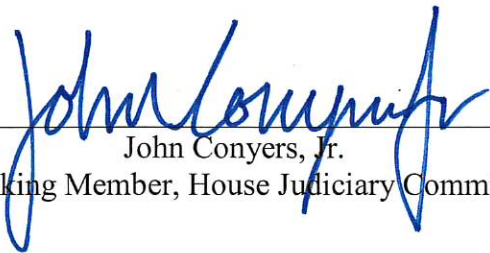 John Conyers Jr
John Conyers, Jr.
king Member, House Judiciary Comm